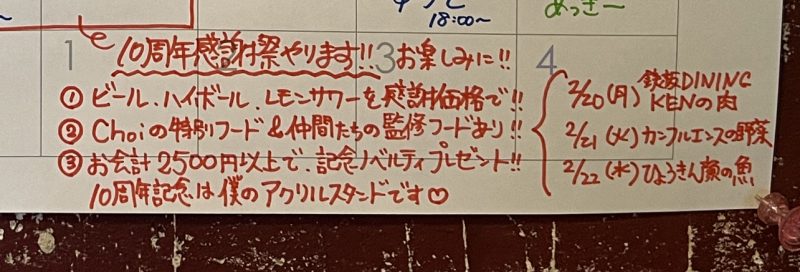 18:00〜
めっきー
1
3
4
10周年感謝祭やります!! お楽しみに!!
① ビール、ハイボール、レモンサワーを感謝価格で!!
② Choiの特別フード&仲間たちの監修フードあり!!
③ お会計2500円以上で、記念ノベルティプレゼント!!
10周年記念は僕のアクリルスタンドです♡
2/20(月) 鉄板DINING KENの肉
2/21(火) カンフルエンスの野菜
2/22(水) ひょうきん顔の魚